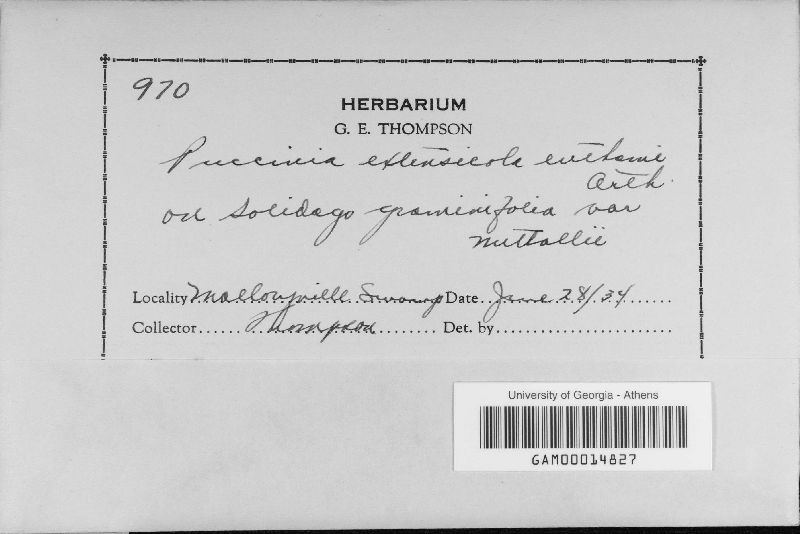 970
HERBARIUM
G. E. THOMPSON
Puccinia extensicola euthami
Arth.
on Solidago graminifolia var
nuttallii
Locality Mallonyville Swamp Date June 28/34
Collector Thompson Det. by
University of Georgia - Athens
GAM00014827